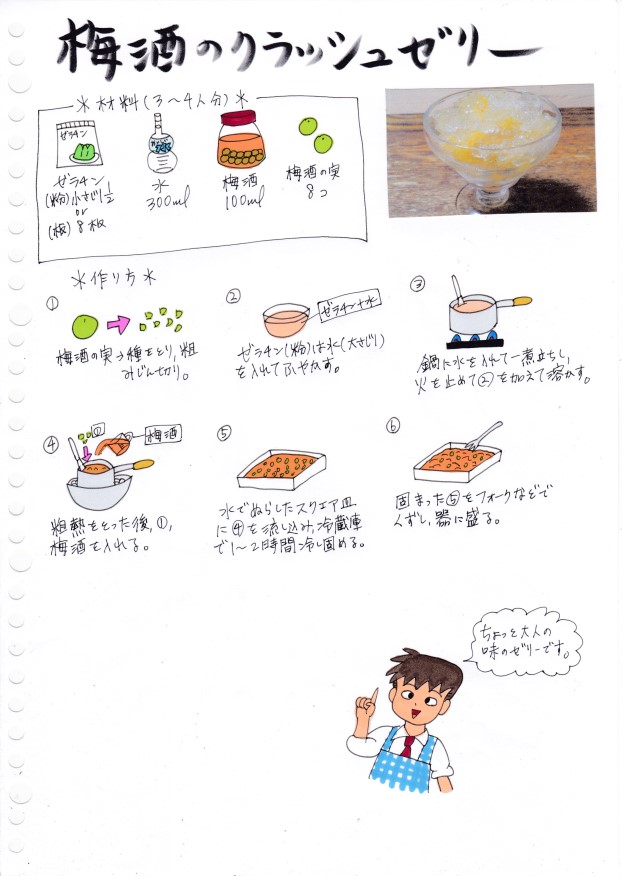 梅酒のクラッシュゼリー
＊材料(3〜4人分)＊
ゼラチン
ゼラチン
(粉)小さじ1/2
or
(板)8枚
水
300ml
梅酒
100ml
梅酒の実
8コ
＊作り方＊
①
梅酒の実→種をとり,粗
みじん切り。
②
ゼラチン+水
ゼラチン(粉)は水(大さじ1)
を入れてふやかす。
③
鍋に水を入れて一煮立ちし,
火を止めて②を加えて溶かす。
④
①
梅酒
粗熱をとった後,①,
梅酒を入れる。
⑤
水でぬらしたスクエア皿
に④を流し込み,冷蔵庫
で1〜2時間冷し固める。
⑥
固まった⑤をフォークなどで
くずし,器に盛る。
ちょっと大人の
味のゼリーです。